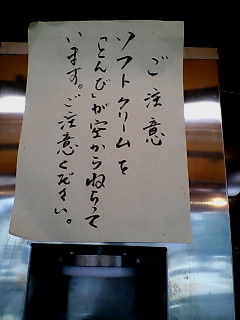 ご注意
ソフトクリームを
「とんび」が空からねらって
います。ご注意ください。